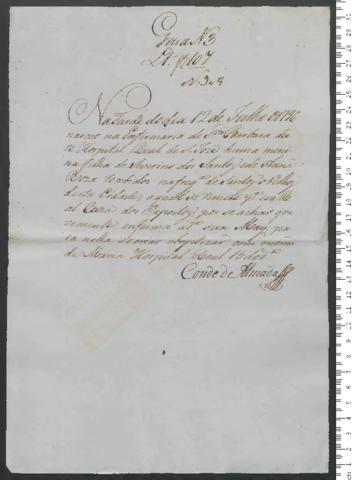 Guia N 3
Lº p 107
Nº 303
Na tarde do dia 12 de Julho
nasceo na Enfermaria de Sta Barbara do
Hospital Real de S. José huma meni-
na filha de Severino dos Santos, e de Anna
Roza recebidos na freg.ª de Santos o Velho
desta Cidade, a qual se remete p.ª essa
Caza dos Expostos, por se achar gra-
vemente enferma a sua May, pa-
ra nella se criar
de Maria Hospital Real
Conde de Almada